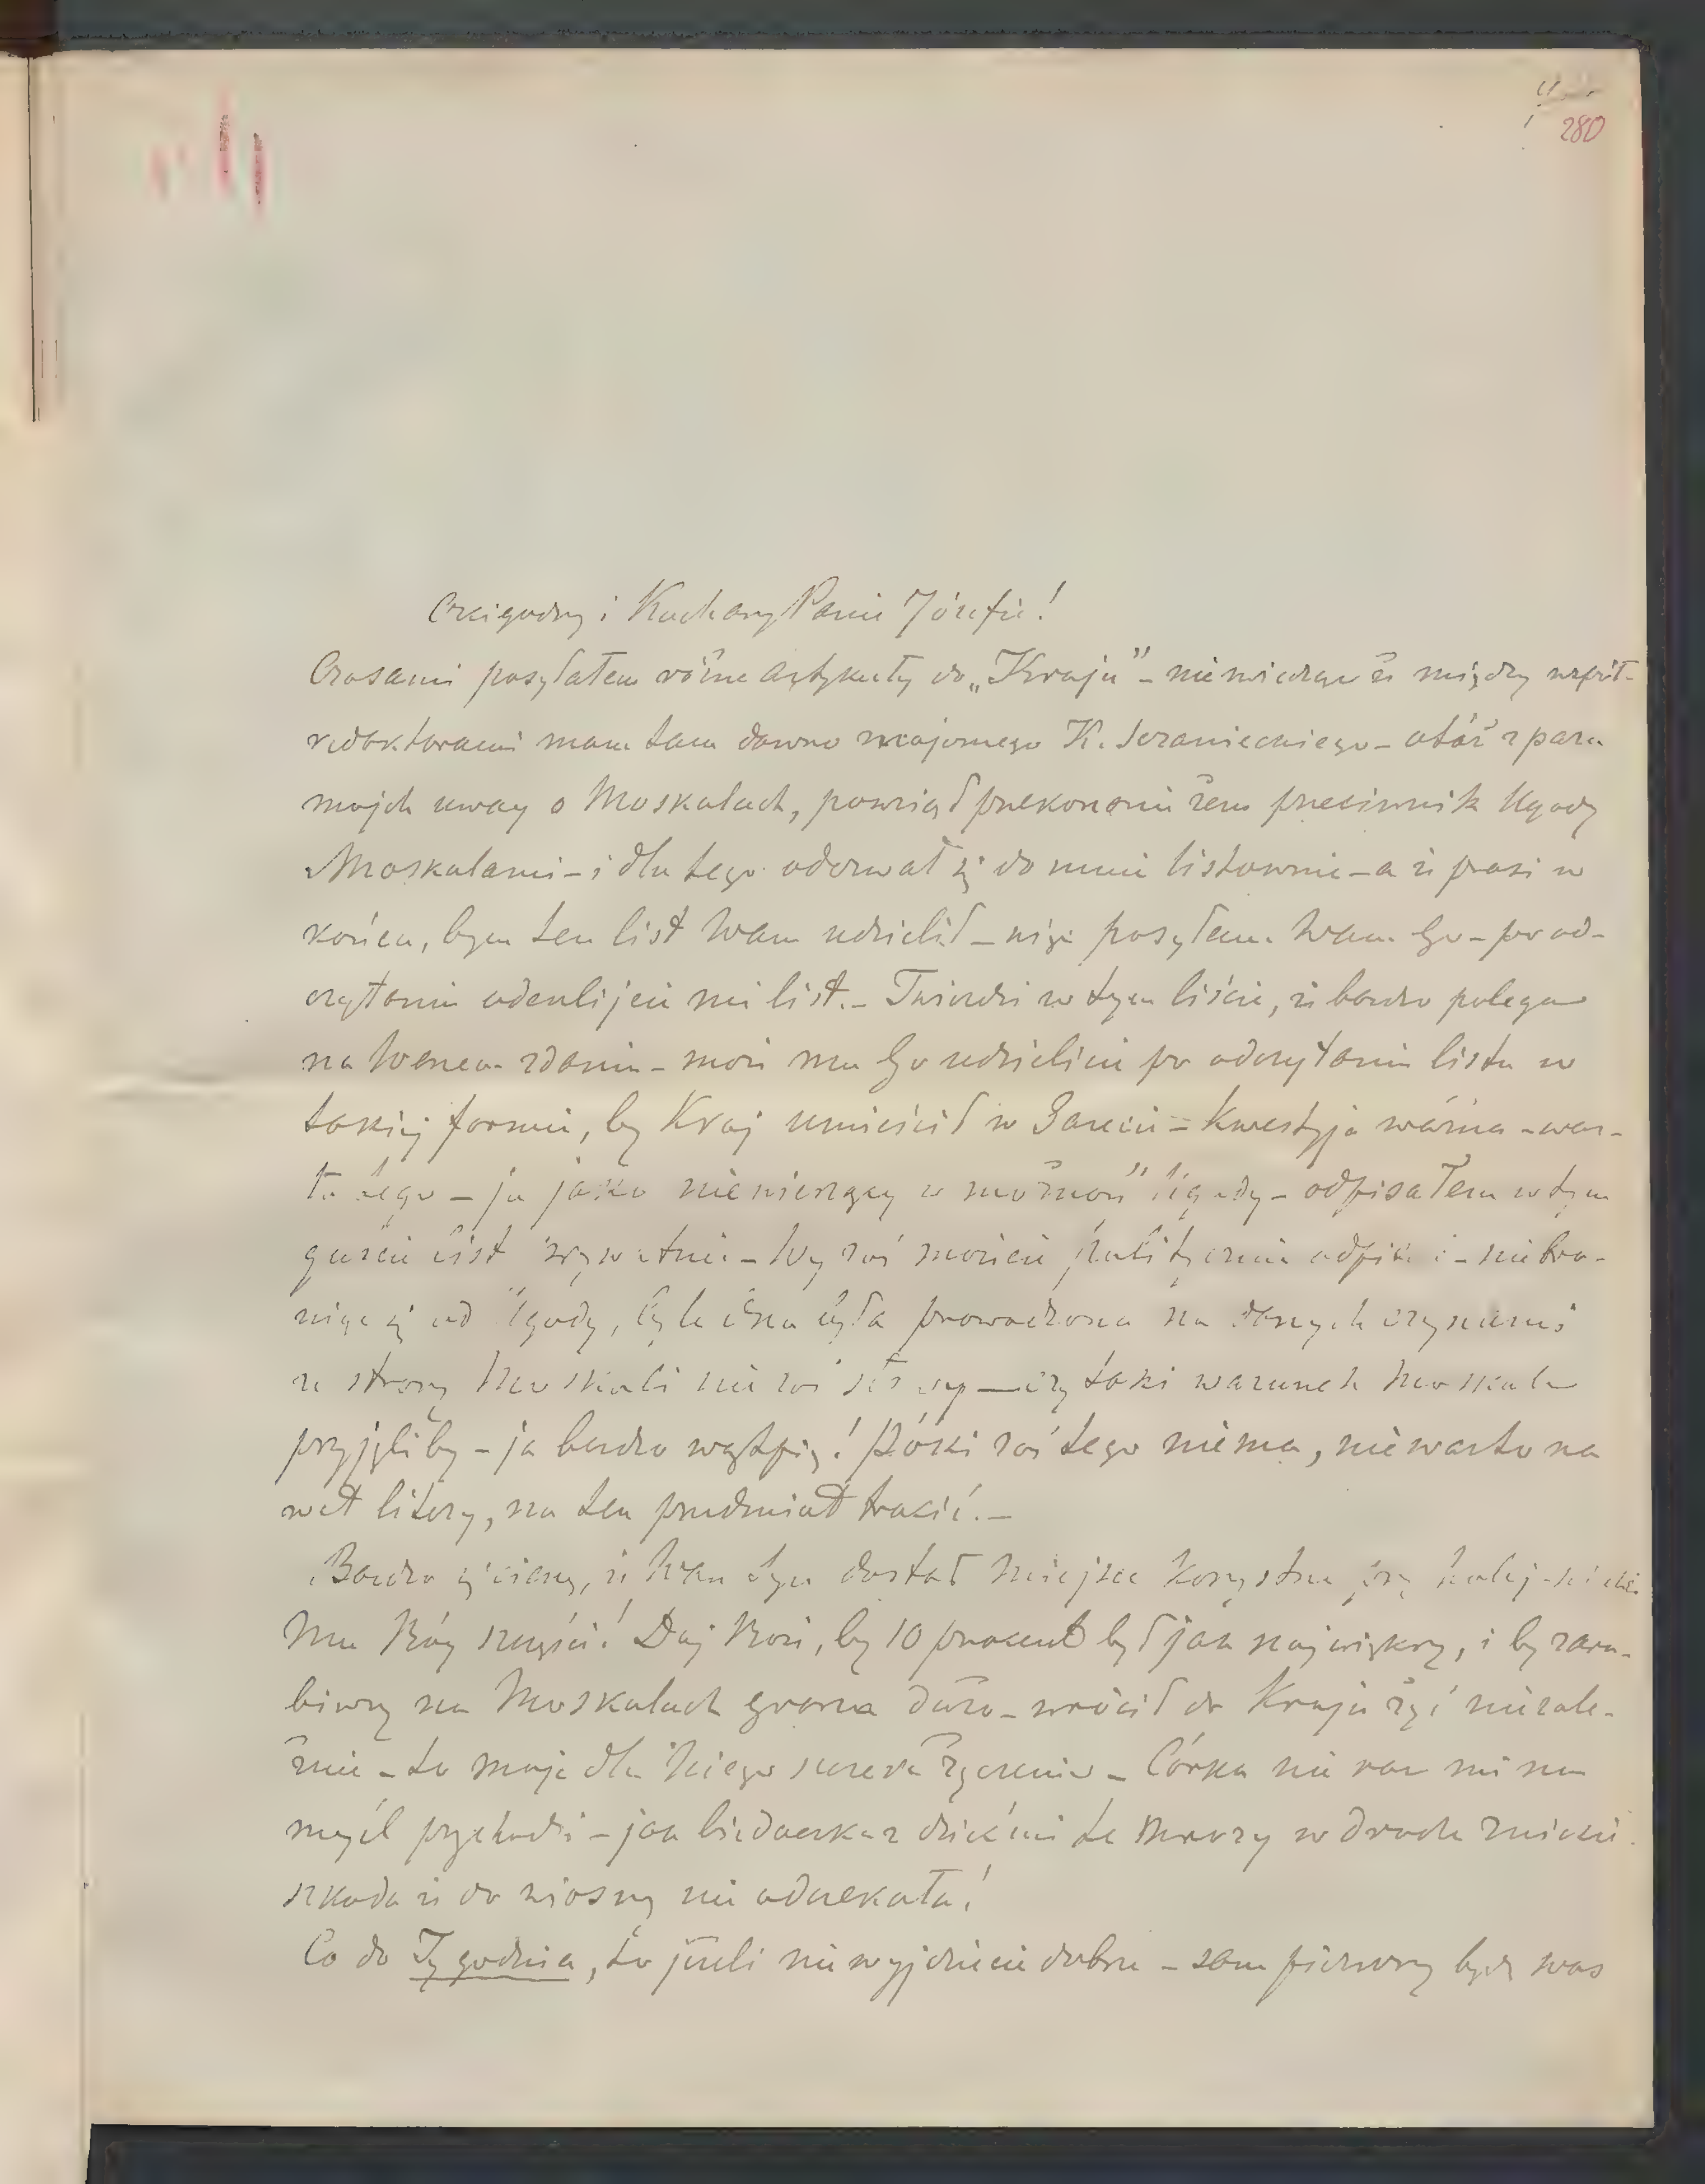 280
Czcigodny i Kochany Panie Józefie!
Czasami posyłałem różne artykuły do „Kraju” – nie wiedząc że między współ-
redaktorami mam tam dawno znajomego K. Szranieckiego – otóż z paru
mojch uwag o Moskalach, powziął przekonanie żem przeciwnik Ugody
z Moskalami – i dla tego odezwał się do mnie listownie – a że prosi w
końcu, bym ten list Wam udzielił – więc posyłam Wam Go – po od-
czytaniu odeślijcie mi list. – Twierdzi w tym liście, że bardzo polega
na Waszem zdaniu – może mu Go udzielicie po odczytaniu listu w
takiej formie, by Kraj umieścił w Gazecie – kwestyja ważna – war-
ta tego – ja jako nie wierzący w możność Ugody – odpisałem w tym
guście list prywatnie – Wy zaś możecie politycznie odpisać – nie bro-
niąc się od Ugody, byle ona była prowadzona na danych czynami
ze strony Moskali nie zaś słowy – czy taki warunek Moskale
przyjęliby – ja bardzo wątpię! Póki zaś tego niema, nie warto na
wet litery, na ten przedmiot tracić. –
Bardzo się cieszę, że Wam Syn dostał miejsce korzystne przy kolej – niech
Mu Bóg szczęści! Daj Boże, by 10 procent był jak największy, i by zaro-
biwszy na Moskalach grosza dużo – wrócił do Kraju żyć niezale-
żnie – to moje dla Niego szczere życzenie – Córka nie raz mi na
myśl przychodzi – jak biedaczka z dziećmi te mrozy w drodze zniesie
szkoda że do wiosny nie odczekała!
Co do Tygodnia, to jeżeli nie wyjdziecie dobrze – sam pierwszy będę was